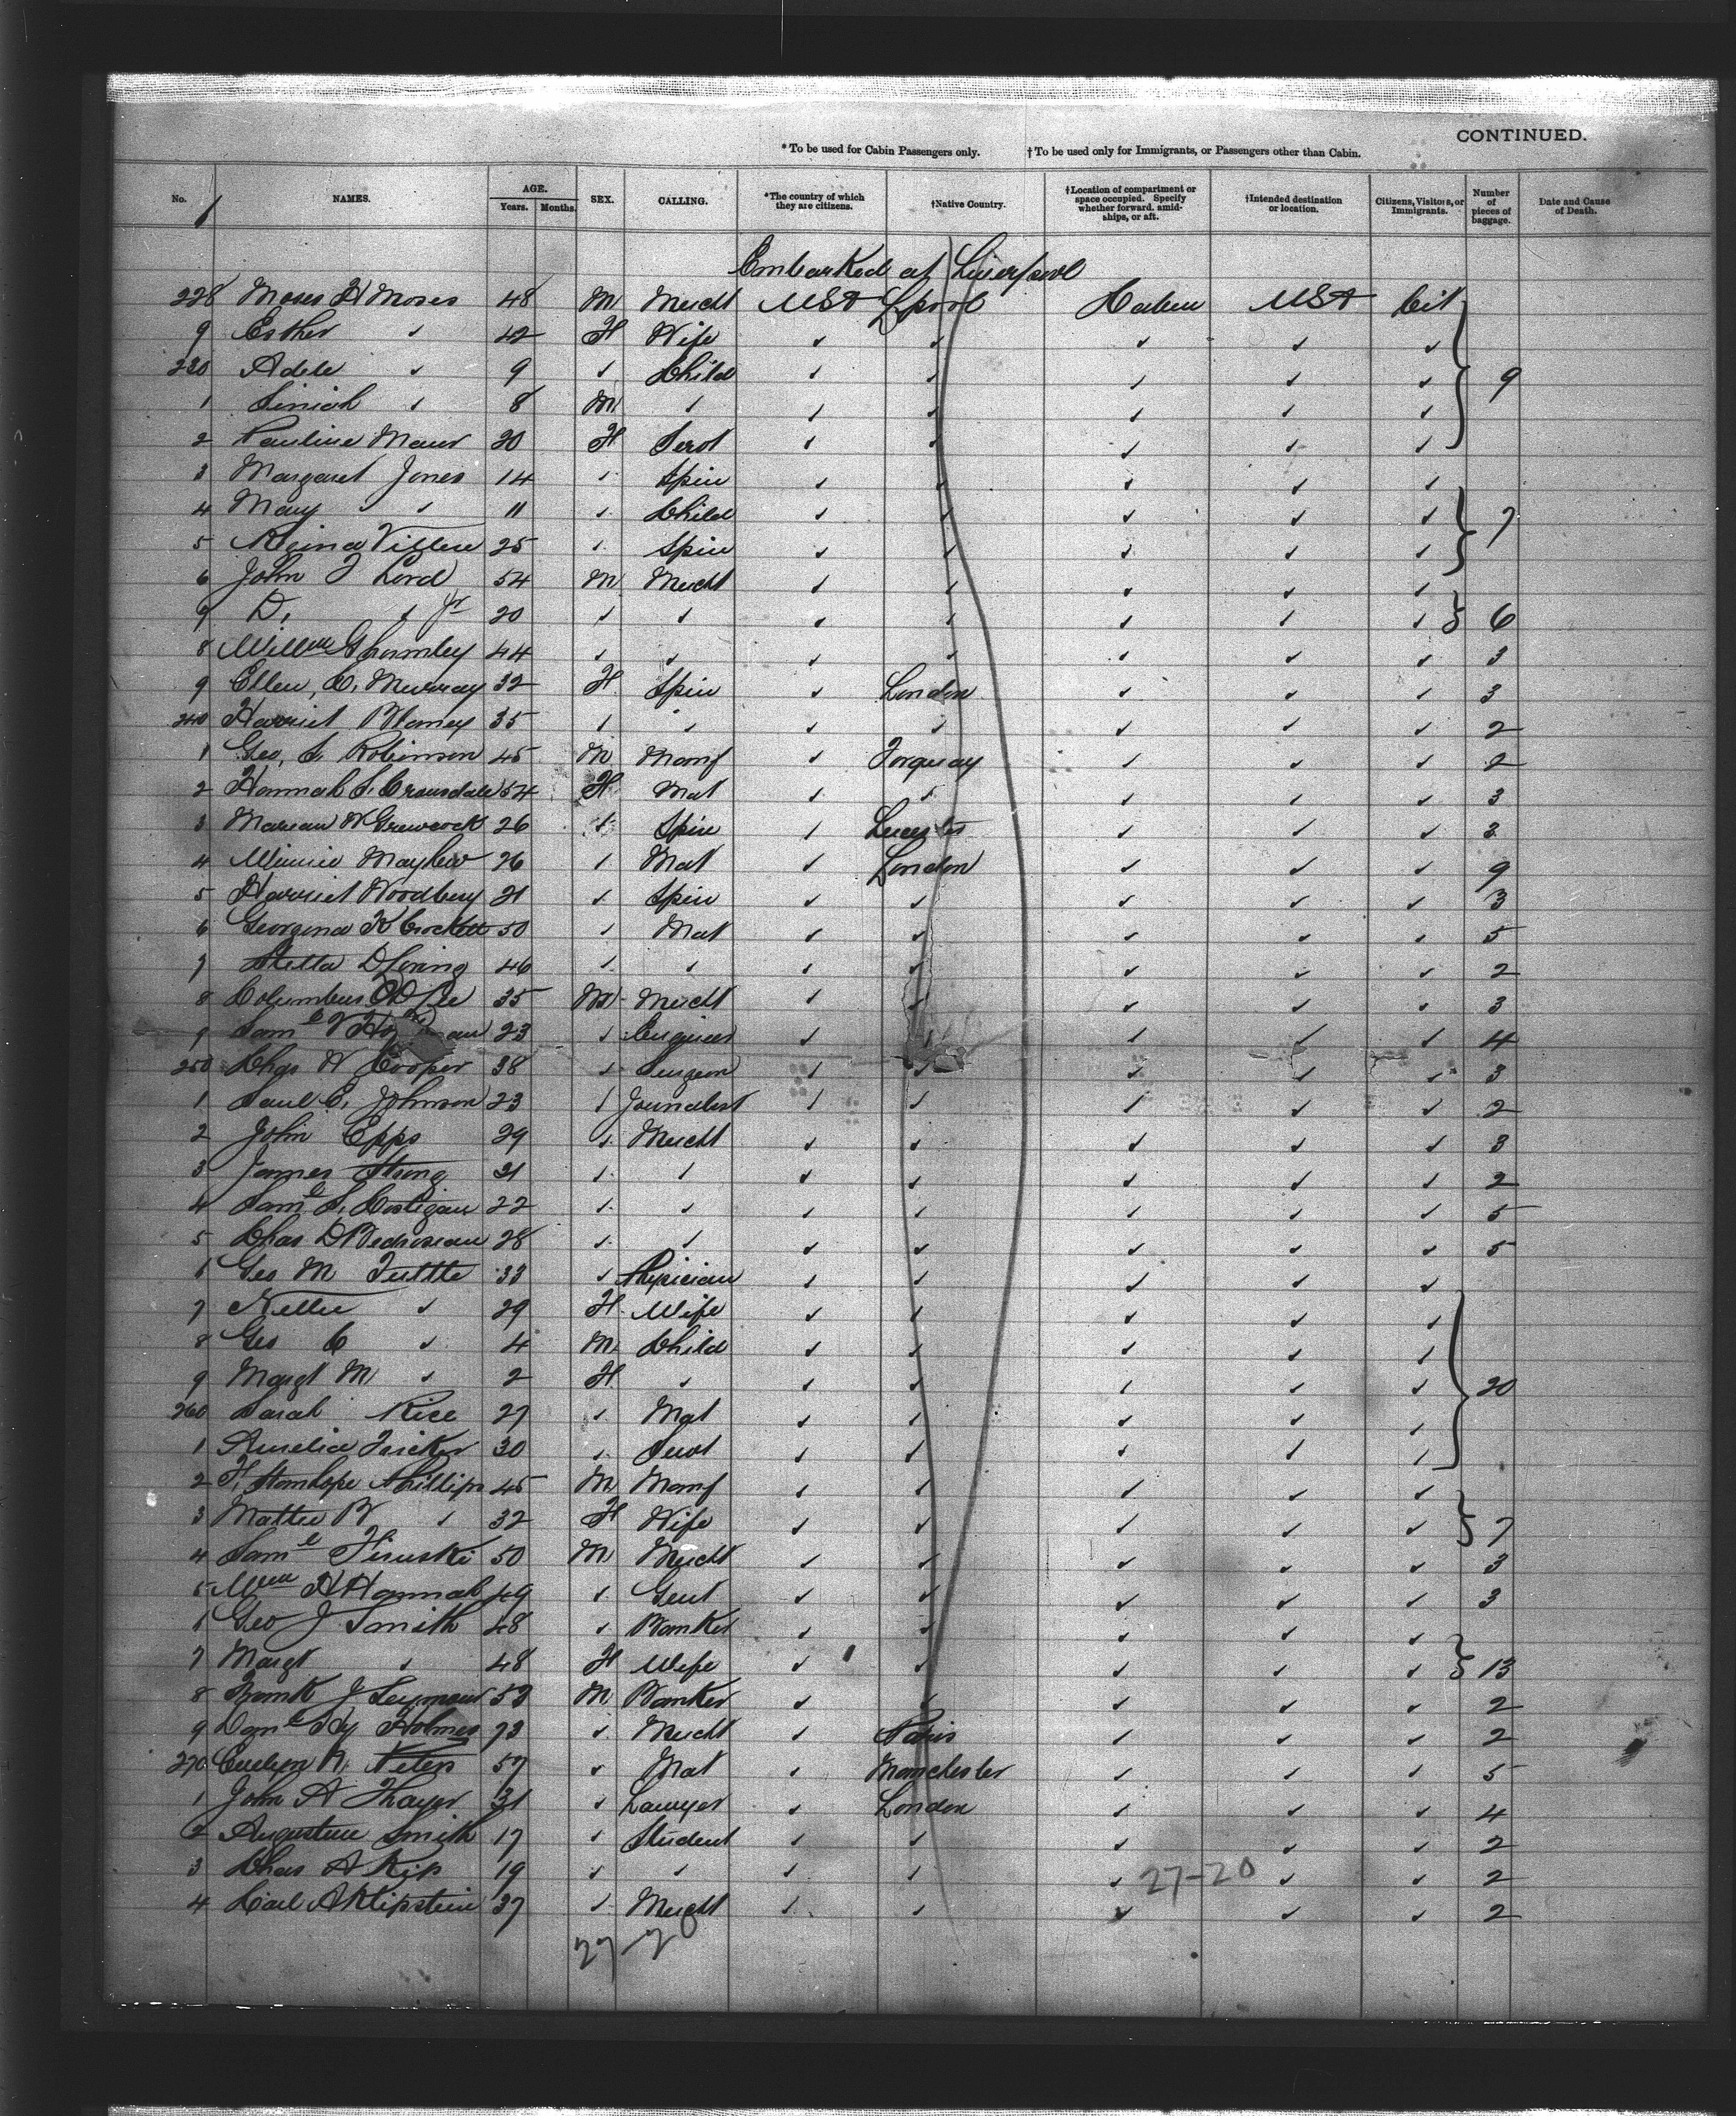 CONTINUED.
* To be used for Cabin Passengers only. † To be used only for Immigrants, or Passengers other than Cabin.
No. NAMES. AGE. Years. Months. SEX. CALLING. *The country of which they are citizens. †Native Country. †Location of compartment or space occupied. Specify whether forward, amidships, or aft. †Intended destination or location. Citizens, Visitors, or Immigrants. Number of pieces of baggage. Date and Cause of Death.
Embarked at Liverpool
228 Moses H Moses 48 M Mercht USA Lpool USA Cit
9 Esther ✓ 42 F Wife ✓ ✓ ✓ ✓ ✓
230 Adele ✓ 9 ✓ Child ✓ ✓ ✓ ✓ ✓ 9
1 ✓ 8 M ✓ ✓ ✓ ✓ ✓ ✓
2 Pauline F ✓ ✓ ✓ ✓ ✓
3 Margaret Jones 14 ✓ Spin ✓ ✓ ✓ ✓ ✓
4 Mary ✓ 11 ✓ Child ✓ ✓ ✓ ✓ ✓ 7
5 25 ✓ Spin ✓ ✓ ✓ ✓ ✓
6 John Lord 54 M Mercht ✓ ✓ ✓ ✓ ✓
D. ✓ Jr 20 ✓ ✓ ✓ ✓ ✓ ✓ ✓ 6
8 44 ✓ ✓ ✓ ✓ ✓ ✓ ✓ 3
9 Ellen, C. Murray 32 F Spin ✓ London ✓ ✓ ✓ 3
240 Harriet Blamey 35 ✓ ✓ ✓ ✓ ✓ ✓ ✓ 2
1 Geo, S. Robinson 45 M Manf ✓ Torquay ✓ ✓ ✓ 2
2 Hannah S. 54 F Mat ✓ ✓ ✓ ✓ ✓ 3
3 Marian W Grewcock 26 ✓ Spin ✓ Leicester ✓ ✓ ✓
4 Minnie Mayhew 26 ✓ Mat ✓ London ✓ ✓ ✓ 9
5 Harriet Woodbury 21 ✓ Spin ✓ ✓ ✓ ✓ ✓ 3
6 Georgena K Crockett 50 ✓ Mat ✓ ✓ ✓ ✓ ✓ 5
7 Stella D Loring 46 ✓ ✓ ✓ ✓ ✓ ✓ ✓ 2
8 Columbus 35 M Mercht ✓ ✓ ✓ ✓ ✓ 3
9 Saml 23 ✓ Engineer ✓ ✓ ✓ ✓ ✓ 4
250 Chas W Cooper 38 ✓ Surgeon ✓ ✓ ✓ ✓ ✓ 3
1 Johnson 23 ✓ Journalist ✓ ✓ ✓ ✓ ✓ 2
2 John Epps 29 ✓ Mercht ✓ ✓ ✓ ✓ ✓ 3
3 James Strong ✓ ✓ ✓ ✓ ✓ ✓ ✓ 2
4 Saml S. Costigan 22 ✓ ✓ ✓ ✓ ✓ ✓ ✓ 5
5 Chas D 28 ✓ ✓ ✓ ✓ ✓ ✓ ✓ 5
6 Geo M Tuttle 33 ✓ Physician ✓ ✓ ✓ ✓ ✓
7 Nellie ✓ 29 F Wife ✓ ✓ ✓ ✓ ✓
8 Geo C ✓ 4 M Child ✓ ✓ ✓ ✓ ✓
9 Margt M ✓ 2 F ✓ ✓ ✓ ✓ ✓ ✓ 20
260 Sarah Rice 27 ✓ Mat ✓ ✓ ✓ ✓ ✓
1 Amelia Fricker 30 ✓ ✓ ✓ ✓ ✓ ✓
2 F. Stanhope Phillips 45 M Manf ✓ ✓ ✓ ✓ ✓
3 Mattie B ✓ 32 F Wife ✓ ✓ ✓ ✓ ✓ 7
4 Saml 50 M Mercht ✓ ✓ ✓ ✓ ✓ 3
5 Wm H Hannah 49 ✓ Gent ✓ ✓ ✓ ✓ ✓ 3
6 Geo J Smith 48 ✓ Banker ✓ ✓ ✓ ✓ ✓
7 Margt ✓ 48 F Wife ✓ ✓ ✓ ✓ ✓ 13
8 Frank J Seymour 53 M Banker ✓ ✓ ✓ ✓ ✓ 2
9 Danl Hy Holmes 73 ✓ Mercht ✓ Paris ✓ ✓ ✓ 2
270 Evelyn N. Peters 57 ✓ Mat ✓ Manchester ✓ ✓ ✓ 5
1 John A Thayer 31 ✓ Lawyer ✓ London ✓ ✓ ✓ 4
2 Augustine Smith 17 ✓ Student ✓ ✓ ✓ ✓ ✓ 2
3 Chas A Kip 19 ✓ ✓ ✓ ✓ ✓ ✓ ✓ 2
27-20
4 Carl A Klipstein 37 ✓ Mercht ✓ ✓ ✓ ✓ ✓ 2
27-20